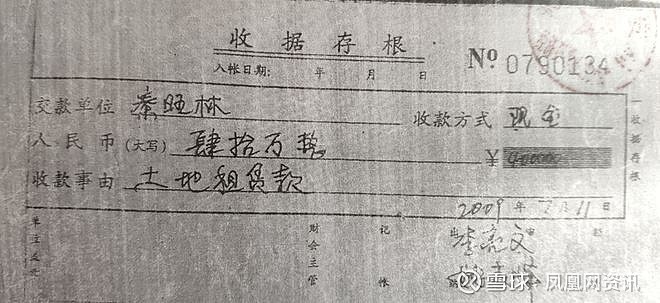 收据存根
入帐日期: 年 月 日
№ 0790134
交款单位 秦旺林 收款方式 现金
人民币 (大写) 肆拾万整 ¥
收款事由 土地租赁款
2009 年 月 11 日
一收据存根
单位盖章 财会主管 记帐 李亮文
雪球:凤凰网资讯